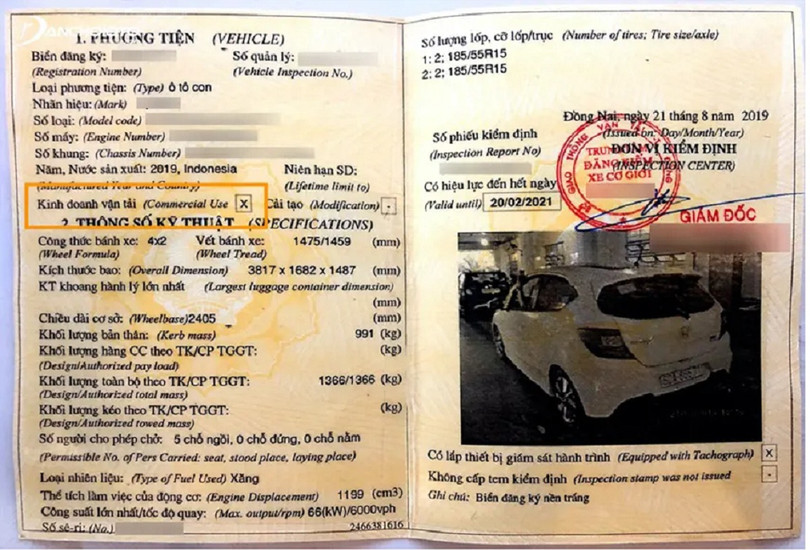 1. PHƯƠNG TIỆN (VEHICLE)
Biển đăng ký: Số quản lý:
(Registration Number) (Vehicle Inspection No.)
Loại phương tiện: (Type) ô tô con
Nhãn hiệu: (Mark)
Số loại: (Model code)
Số máy: (Engine Number)
Số khung: (Chassis Number)
Năm, Nước sản xuất: 2019, Indonesia Niên hạn SD:
(Manufactured Year and Country) (Lifetime limit to)
Kinh doanh vận tải (Commercial Use) X Cải tạo (Modification) -
2. THÔNG SỐ KỸ THUẬT (SPECIFICATIONS)
Công thức bánh xe: 4x2 Vết bánh xe: 1475/1459 (mm)
(Wheel Formula) (Wheel Tread)
Kích thước bao: (Overall Dimension) 3817 x 1682 x 1487 (mm)
KT khoang hành lý lớn nhất (Largest luggage container dimension)
(mm)
Chiều dài cơ sở: (Wheelbase) 2405 (mm)
Khối lượng bản thân: (Kerb mass) 991 (kg)
Khối lượng hàng CC theo TK/CP TGGT: (kg)
(Design/Authorized pay load)
Khối lượng toàn bộ theo TK/CP TGGT: 1366/1366 (kg)
(Design/Authorized total mass)
Khối lượng kéo theo TK/CP TGGT: (kg)
(Design/Authorized towed mass)
Số người cho phép chở: 5 chỗ ngồi, 0 chỗ đứng, 0 chỗ nằm
(Permissible No. of Pers Carried: seat, stood place, laying place)
Loại nhiên liệu: (Type of Fuel Used) Xăng
Thể tích làm việc của động cơ: (Engine Displacement) 1199 (cm3)
Công suất lớn nhất/tốc độ quay: (Max. output/rpm) 66(kW)/6000vph
Số sê-ri: (No.) 2466381616
Số lượng lốp, cỡ lốp/trục (Number of tires; Tire size/axle)
1: 2; 185/55R15
2: 2; 185/55R15
Đồng Nai, ngày 21 tháng 8 năm 2019
Số phiếu kiểm định (Issued on: Day/Month/Year)
(Inspection Report No) ĐƠN VỊ KIỂM ĐỊNH
(INSPECTION CENTER)
TRUNG TÂM
ĐĂNG KIỂM
XE CƠ GIỚI
Có hiệu lực đến hết ngày
(Valid until) 20/02/2021
GIÁM ĐỐC
Có lắp thiết bị giám sát hành trình (Equipped with Tachograph) X
Không cấp tem kiểm định (Inspection stamp was not issued) -
Ghi chú: Biển đăng ký nền trắng